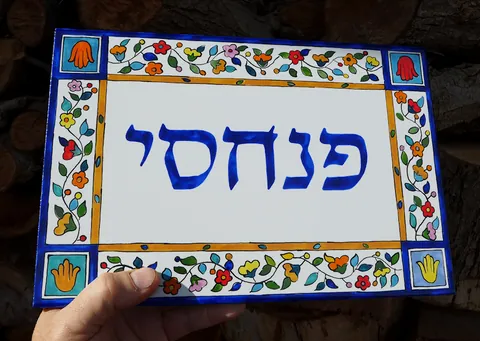 פנחסי